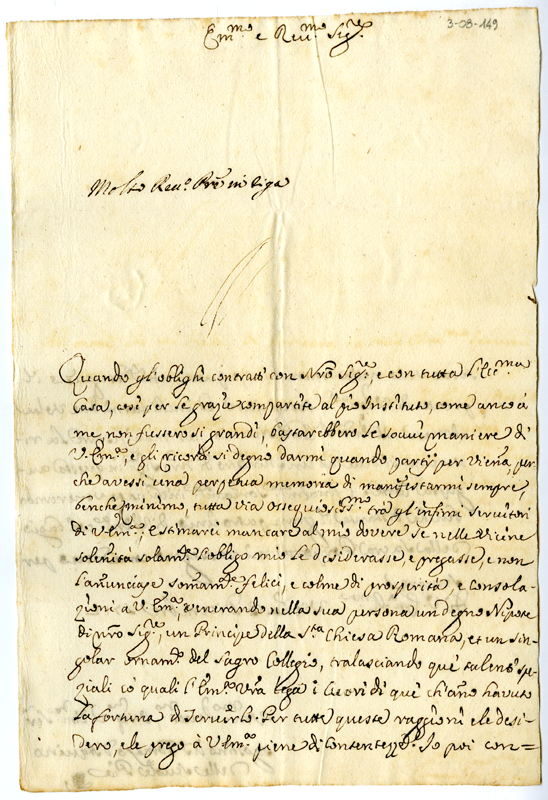 3-08-149
Em.mo e Rev.mo Sig.re
Molto Rev.o Pre in Xpa
Quando gl'oblighi contratti con Nro Sig.re, e con tutta l'Ecc.ma
Casa, così per le grazie compartite al pio Instituto, come anco à
me, non fussero sì grandi, bastarebbero le soavi maniere di
V. Em.a, e gli ricordi si degnò darmi quando partÿ per Viena, per
che avessi una perpetua memoria di manifestarmi sempre,
benche minimo, tutta via ossequiosiss.mo trà gl'infimi servitori
di V. Em.a; Estimarei mancare al mio dovere se nelle vicine
solenità solam.te l'obligo mio le desiderasse, e pregasse, e non
l'anunciasse somam.te felici, e colme di prosperità, e consola-
zioni à V. Em.a, venerando nella sua persona un degno Nipote
di nro Sig.re, un Principe della S.ta Chiesa Romana, et un sin-
golar ornam.to del Sagro Collegio, tralasciando que' talenti spe-
ziali co' quali l'Em.a Vra lega i Cuori di que' ch'anno havuto
la fortuna di servirlo. Per tutte queste raggioni ele desi-
dero, ele prego à V. Em.a piene di Contentezze. Io poi con=